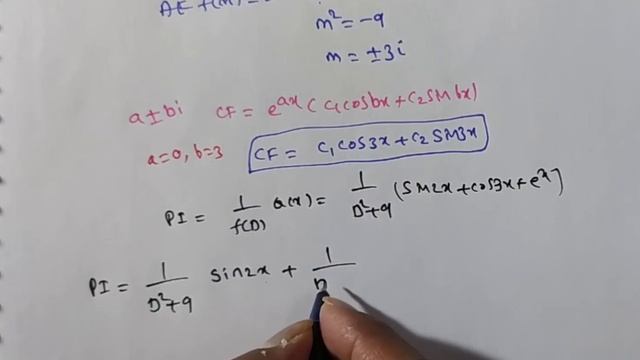 AE f(m) =
m² = -9
m = ±3i
a±bi CF = e^{ax} (C₁cosbx + C₂sinbx)
a=0, b=3 CF = C₁cos3x + C₂sin3x
PI = 1/f(D) Q(x) = 1/D²+9 (sin2x + cos3x + eˣ)
PI = 1/D²+9 sin2x + 1/D